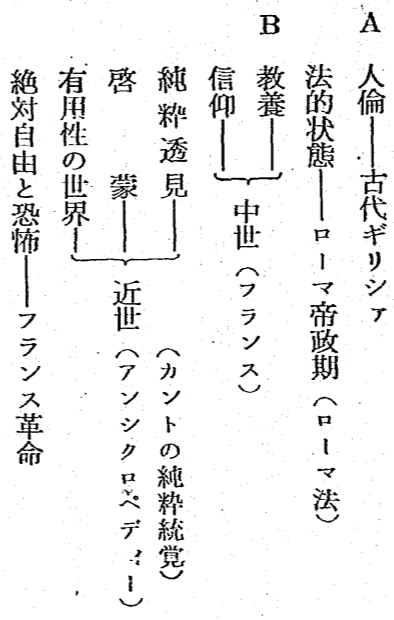 A 人倫――古代ギリシァ
法的状態――ローマ帝政期（ローマ法）
B 教養――
信仰――
中世（フランス）
純粋透見――
啓蒙――
有用性の世界――
近世
（カントの純粋統覚）
（アンシクロペディー）
絶対自由と恐怖――フランス革命